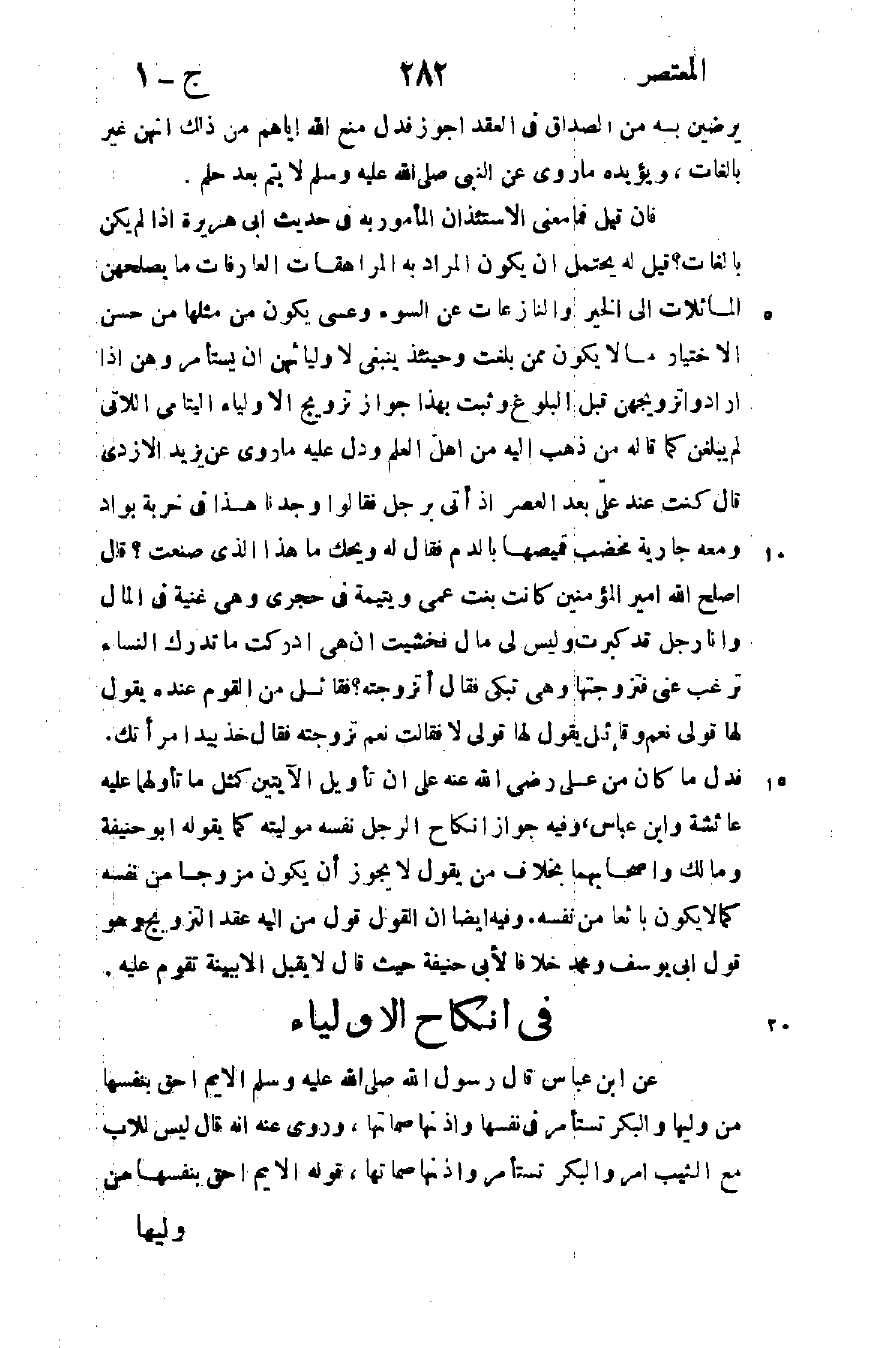 المعتصر ٢٨٢ ج - ١
يرضين به من الصداق فى العقد اجوز فدل منع الله إياهم من ذلك انهن غير
بالغات ، ويؤيده ماروى عن النبى صلى الله عليه وسلم لا يتم بعد حلم .
فان قيل فما معنى الاستئذان المأمور به فى حديث ابى هريرة اذا لم يكن
بالغات؟ قيل له يحتمل ان يكون المراد به المراهقات العارفات ما يصلحهن
المائلات الى الخير والنازعات عن السوء وعسى يكون من مثلها من حسن ٥
الاختيار مالا يكون ممن بلغت وحينئذ ينبغى لاوليائهن ان يستأمروهن اذا
ارادوا تزويجهن قبل البلوغ وثبت بهذا جواز تزويج الاولياء اليتامى اللاتى
لم يبلغن كما قاله من ذهب اليه من اهل العلم ودل عليه ماروى عن يزيد الازدى
قال كنت عند علىّ بعد العصر اذ أتى برجل فقالوا وجدنا هذا فى خربة بواد
ومعه جارية مخضب قميصها بالدم فقال له ويحك ما هذا الذى صنعت ؟ قال ١٠
اصلح الله امير المؤمنين كانت بنت عمى ويتيمة فى حجرى وهى غنية فى المال
وانا رجل قد كبرت وليس لى مال فخشيت ان هى ادركت ما تدرك النساء
ترغب عنى فتزوجتها وهى تبكى فقال أتزوجته؟ فقائل من القوم عنده يقول
لها قولى نعم وقائل يقول لها قولى لا فقالت نعم تزوجته فقال خذ بيد امرأتك.
فدل ما كان من على رضى الله عنه على ان تأويل الآيتين كمثل ما تأولها عليه ١٥
عائشة وابن عباس، وفيه جواز انكاح الرجل نفسه موليته كما يقوله ابوحنيفة
ومالك واصحابهما بخلاف من يقول لا يجوز أن يكون مزوجا من نفسه
كمالا يكون بائعا من نفسه. وفيه ايضا ان القول قول من اليه عقد التزويج وهو
قول ابى يوسف ومحمد خلافا لأبى حنيفة حيث قال لا يقبل الا ببينة تقوم عليه .
فى انكاح الاولياء ٢٠
عن ابن عباس قال رسول الله صلى الله عليه وسلم الايم احق بنفسها
من وليها والبكر تستأمر فى نفسها واذنها صماتها ، وروى عنه انه قال ليس للاب
مع الثيب امر والبكر تستأمر واذنها صماتها ، قوله الايم احق بنفسها من
وليها